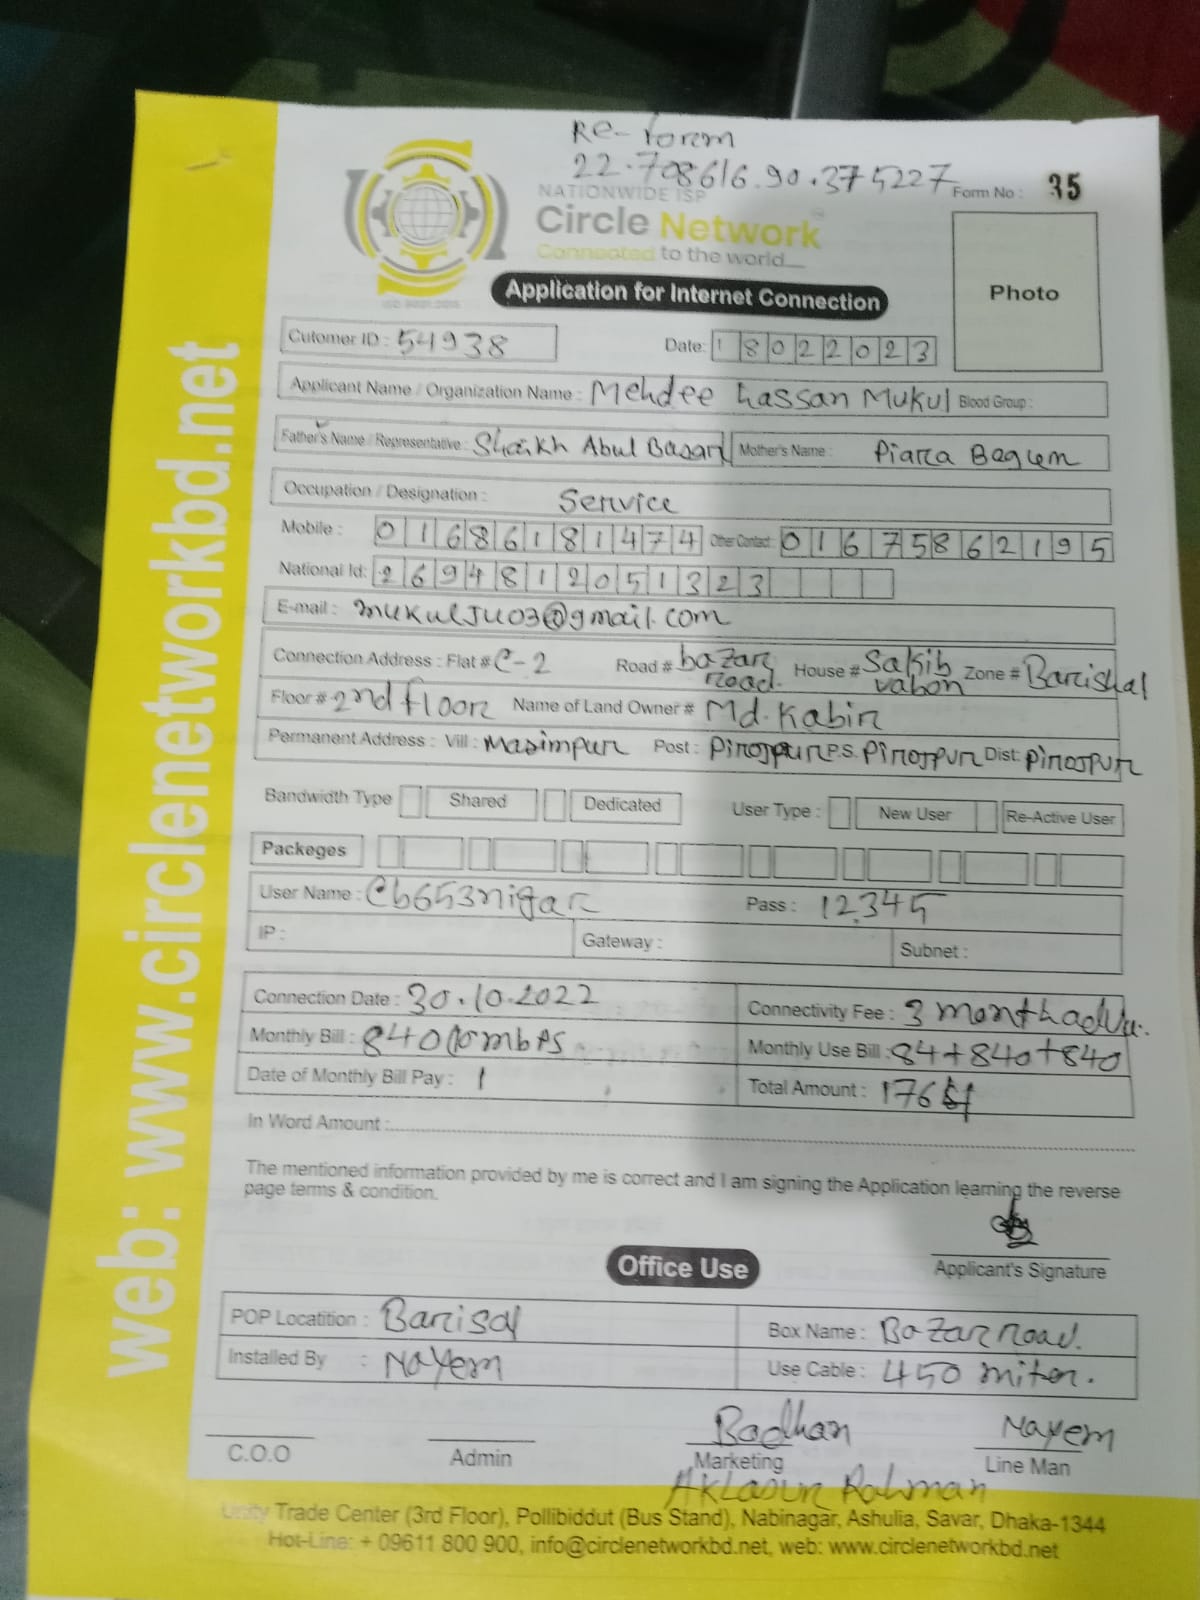 Re-form
22.708616.90.375227
NATIONWIDE ISP
Form No : 35
Circle Network
Connected to the world
Application for Internet Connection
Photo
Cutomer ID : 54938
Date: 18022023
Applicant Name / Organization Name : Mehdee hassan Mukul Blood Group :
Father's Name / Representative : Shaikh Abul Basar Mother's Name : Piara Begum
Occupation / Designation : Service
Mobile : 01686181474 Other Contact: 01675862195
National Id: 2694812051323
E-mail : mukulju03@gmail.com
Connection Address : Flat # C-2 Road # bazar road. House # Sakib vabon Zone # Barishal
Floor # 2nd floor Name of Land Owner # Md. Kabir
Permanent Address : Vill : Masimpur Post : Pirojpur P.S. Pirojpur Dist: Pirojpur
Bandwidth Type Shared Dedicated User Type : New User Re-Active User
Packeges
User Name : Cb653nigar Pass : 12345
IP : Gateway : Subnet :
Connection Date : 30.10.2022 Connectivity Fee : 3 month
Monthly Bill : 840 Monthly Use Bill : 84+840+840
Date of Monthly Bill Pay : 1 Total Amount :
In Word Amount :
The mentioned information provided by me is correct and I am signing the Application learning the reverse
page terms & condition.
Applicant's Signature
Office Use
POP Locatition : Barisal Box Name : Bazar road.
Installed By : Nayem Use Cable : 450 miter.
Badhan Nayem
C.O.O Admin Marketing Line Man
Aklasur Rahman
Unity Trade Center (3rd Floor), Pollibiddut (Bus Stand), Nabinagar, Ashulia, Savar, Dhaka-1344
Hot-Line: + 09611 800 900, info@circlenetworkbd.net, web: www.circlenetworkbd.net
web: www.circlenetworkbd.net